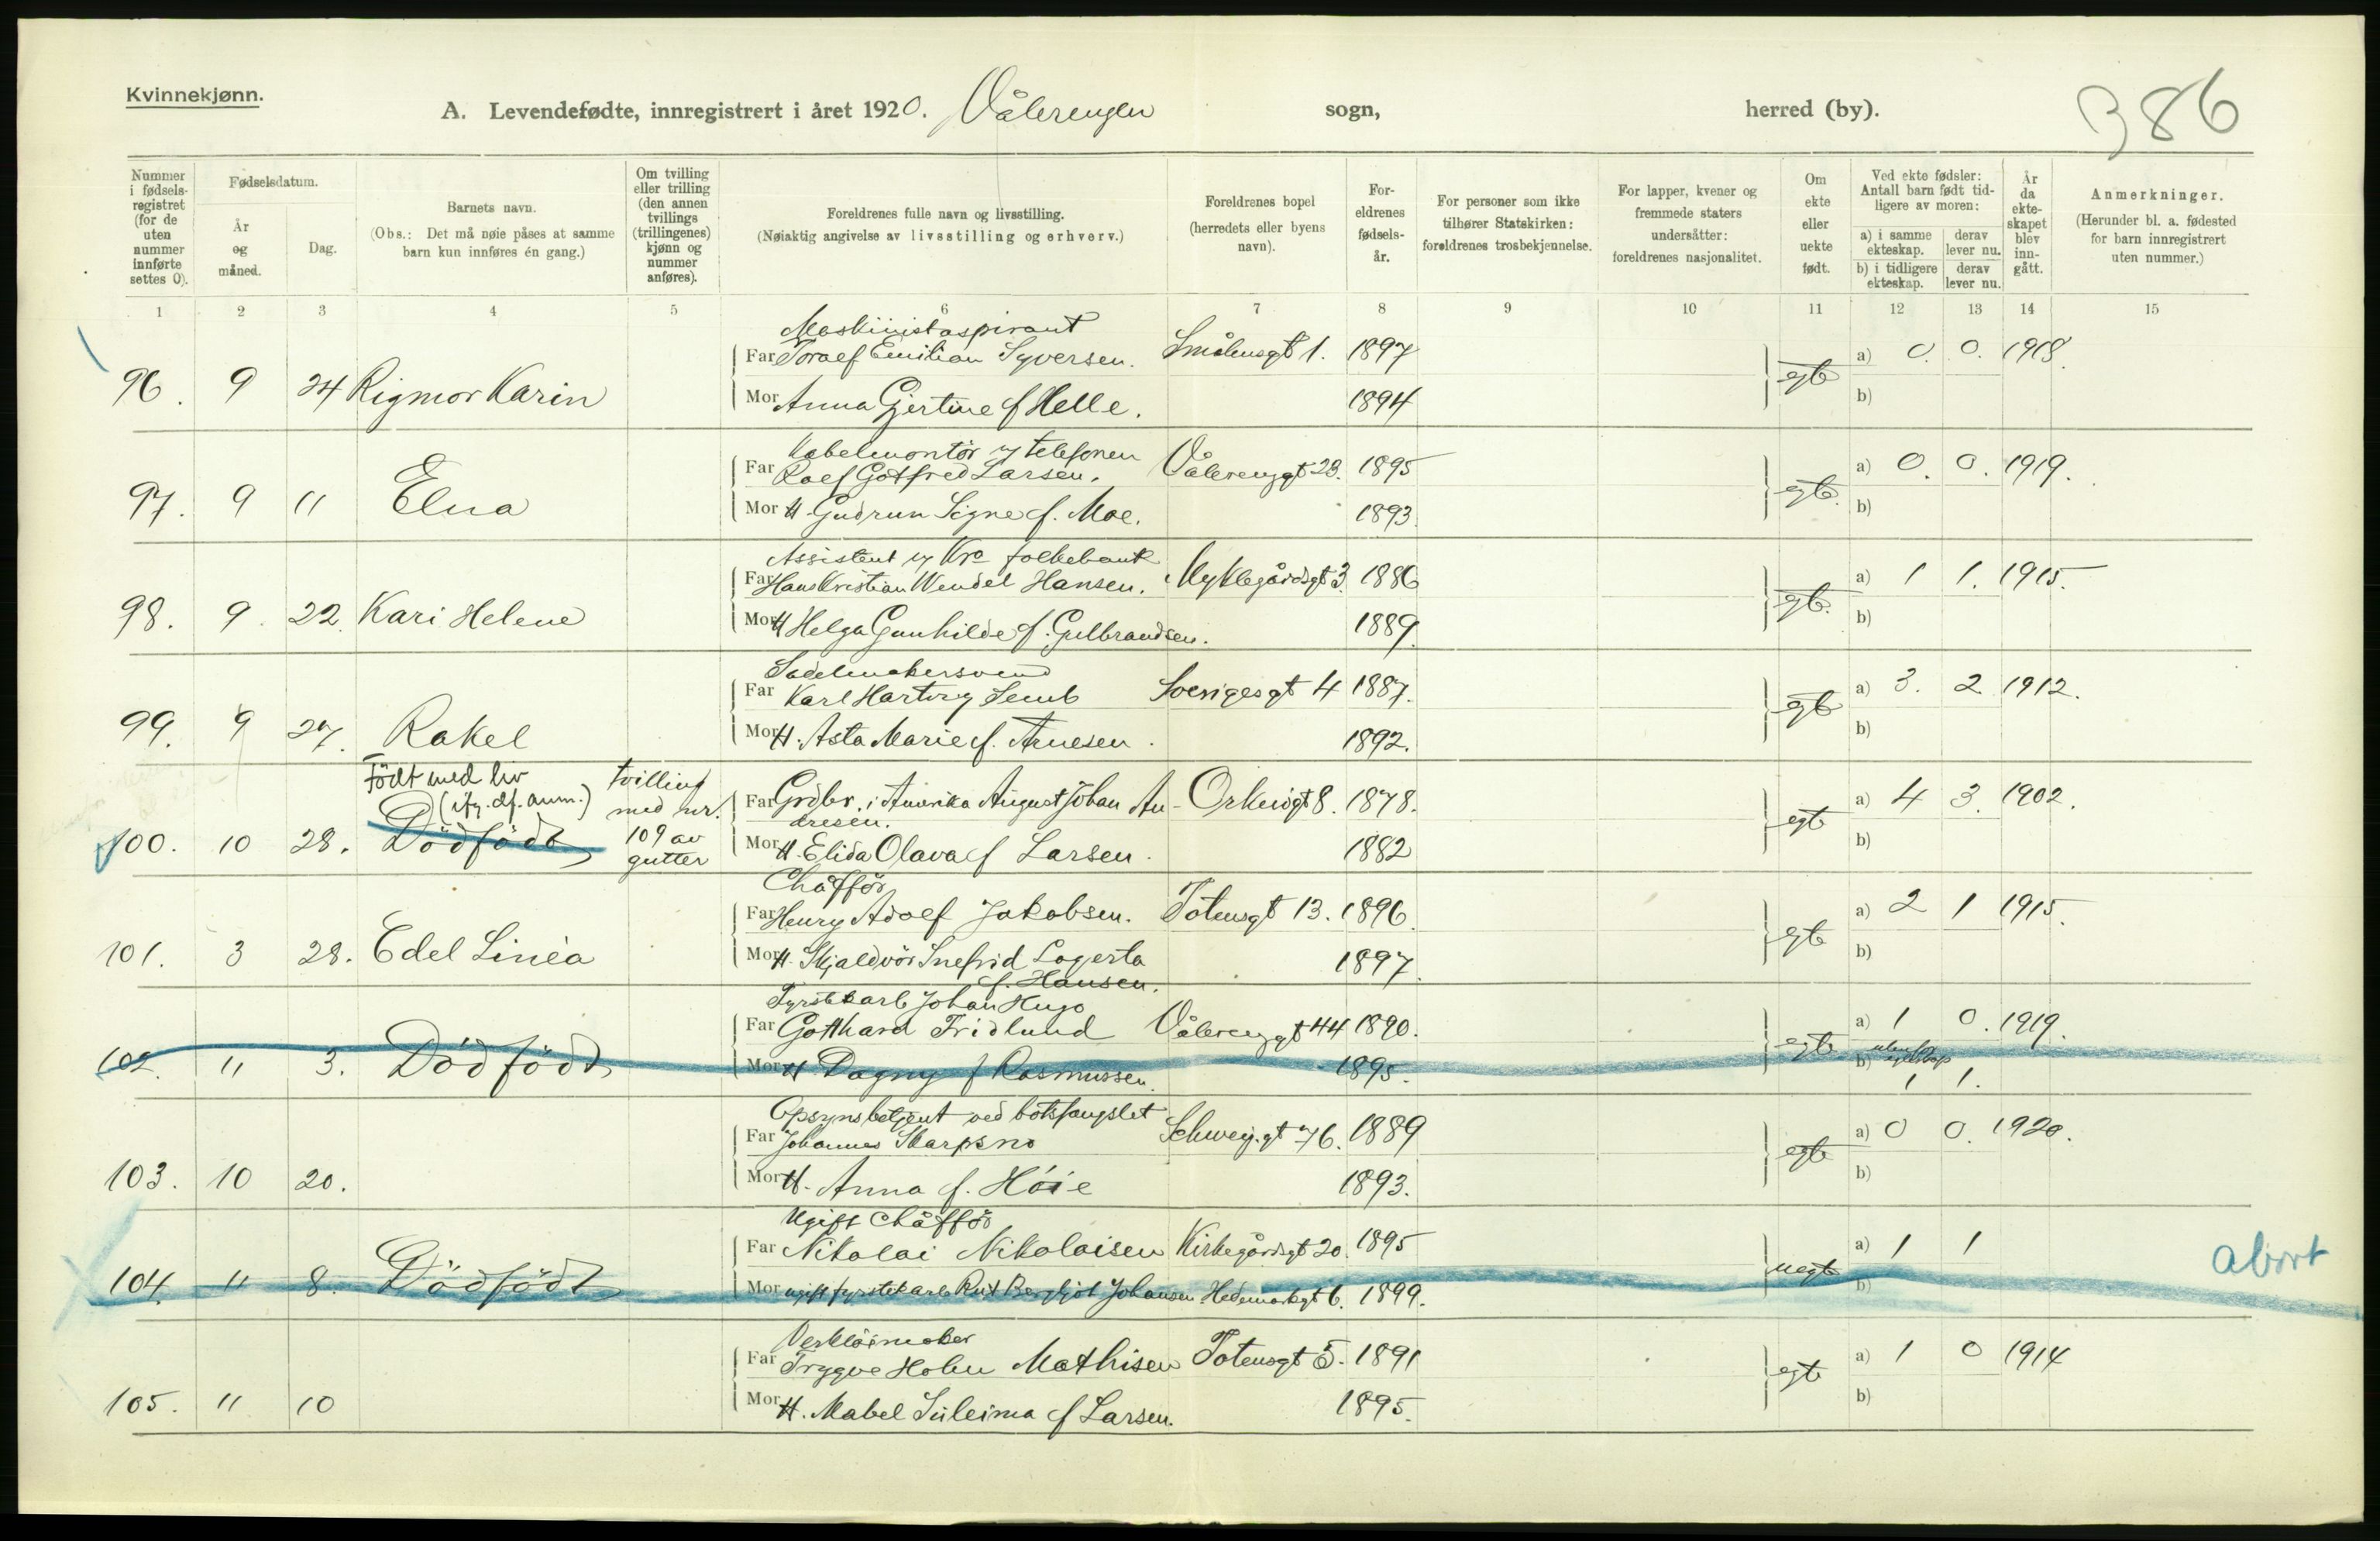 Kvinnekjønn.
A. Levendefødte, innregistrert i året 1920. Vålerengen sogn, herred (by).
386
Nummer i fødselsregistret (for de uten nummer innførte settes 0).
Fødselsdatum.
År og måned.
Dag.
Barnets navn.
(Obs.: Det må nøie påses at samme barn kun innføres én gang.)
Om tvilling eller trilling (den annen tvillings (trillingenes) kjønn og nummer anføres).
Foreldrenes fulle navn og livsstilling.
(Nøiaktig angivelse av livsstilling og erhverv.)
Foreldrenes bopel
(herredets eller byens navn).
Foreldrenes fødselsår.
For personer som ikke tilhører Statskirken: foreldrenes trosbekjennelse.
For lapper, kvener og fremmede staters undersåtter: foreldrenes nasjonalitet.
Om ekte eller uekte født.
Ved ekte fødsler: Antall barn født tidligere av moren:
a) i samme ekteskap.
derav lever nu.
b) i tidligere ekteskap.
derav lever nu.
År da ekteskapet blev inngått.
Anmerkninger.
(Herunder bl. a. fødested for barn innregistrert uten nummer.)
1 2 3 4 5 6 7 8 9 10 11 12 13 14 15
Maskinistaspirant
Far Toraef Emilian Syversen. Smålensgt 1. 1897 a) 0. 0. 1918.
96. 9 24 Rigmor Karin egte
Mor Anna Gjertine f Helle. 1894 b)
Kabelmontör v telefonen
Far Roef Gotfred Larsen. Vålerenggt 23. 1895 a) 0. 0. 1919.
97. 9 11 Elna egte.
Mor H. Gudrun Signe f. Moe. 1893. b)
Assistent v Kra folkebank
Far Hans Kristian Wendel Hansen. Myklegårdsgt 3. 1886 a) 1 1. 1915.
98. 9. 22. Kari Helene egte.
Mor H Helga Gunhilde f. Gulbrandsen. 1889. b)
Sadelmakersvend
Far Karl Hartvig Semb Sverigesgt 4 1887. a) 3. 2 1912.
99. 9 27. Rakel egte
Mor H. Asta Marie f. Arnesen. 1892. b)
Födt med liv tvilling
(ifg. df. anm.) med nr.
Far Grdbr. i Amerika August Johan Andresen. Orknögt 8. 1878. a) 4 3. 1902.
100. 10 28. Dödfödt 109 av gutter egte
Mor H. Elida Olava f Larsen. 1882 b)
Chåfför
Far Henry Adolf Jakobsen. Totensgt 13. 1896. a) 2 1 1915.
101. 3 28. Edel Linéa egte
Mor H. Skjaldvör Snefrid Lagerta f. Hansen. 1897. b)
Fyrstekarb Johan Hugo
Far Gotthard Fridlund Vålerenggt 44 1890. a) 1 0. 1919.
102. 11 3. Dödfödt egte
Mor H. Dagny f Rasmussen. 1895. b) uten egteskap 1 1.
Opsynsbetjent ved botsfængslet
Far Johannes Skarpsno Schweig.gt 76. 1889 a) 0 0. 1920.
103. 10 20. egte
Mor H. Anna f. Höie 1893. b)
Ugift Chåfför
Far Nikolai Nikolaisen Kirkegårdsgt 20. 1895 a) 1 1
104. 11 8. Dödfödt uegte abort
Mor ugift fyrstekarb Rut Bergljot Johansen Hedemarksgt 6. 1899. b)
Verktöimaker
Far Trygve Holm Mathisen Totensgt 5. 1891 a) 1 0 1914
105. 11 10 egte
Mor H. Mabel Suleima f Larsen. 1895. b)